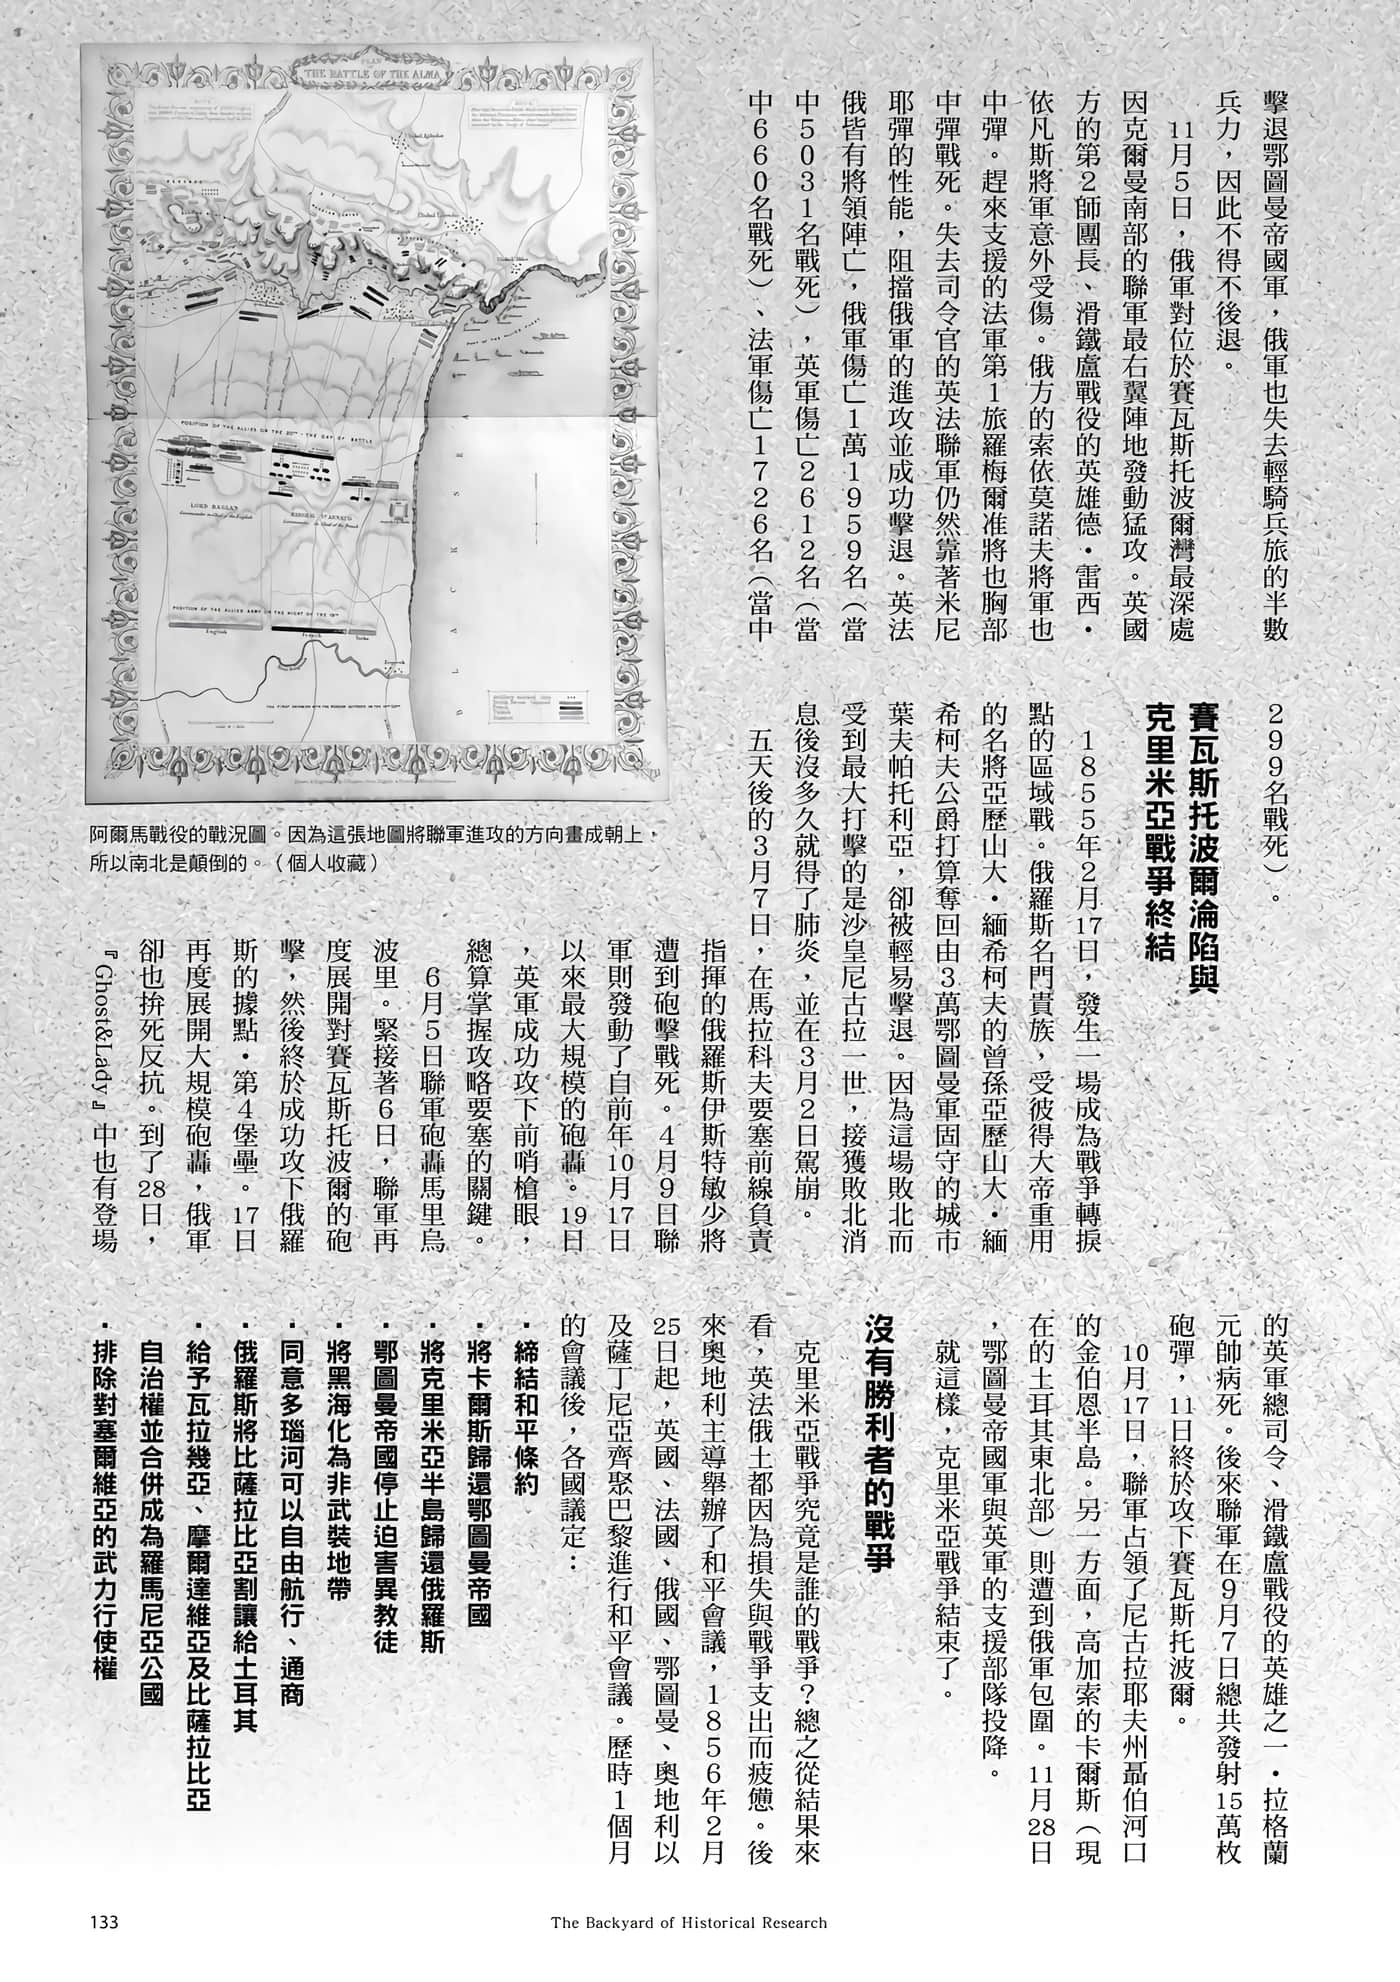 擊退鄂圖曼帝國軍，俄軍也失去輕騎兵旅的半數
兵力，因此不得不後退。
11月5日，俄軍對位於賽瓦斯托波爾灣最深處
因克爾曼南部的聯軍最右翼陣地發動猛攻。英國
方的第2師團長、滑鐵盧戰役的英雄德・雷西・
依凡斯將軍意外受傷。俄方的索依莫諾夫將軍也
中彈。趕來支援的法軍第1旅羅梅爾准將也胸部
中彈戰死。失去司令官的英法聯軍仍然靠著米尼
耶彈的性能，阻擋俄軍的進攻並成功擊退。英法
俄皆有將領陣亡，俄軍傷亡1萬1959名（當
中5031名戰死），英軍傷亡2612名（當
中660名戰死）、法軍傷亡1726名（當中
299名戰死）。
賽瓦斯托波爾淪陷與
克里米亞戰爭終結
1855年2月17日，發生一場成為戰爭轉捩
點的區域戰。俄羅斯名門貴族，受彼得大帝重用
的名將亞歷山大・緬希柯夫的曾孫亞歷山大・緬
希柯夫公爵打算奪回由3萬鄂圖曼軍固守的城市
葉夫帕托利亞，卻被輕易擊退。因為這場敗北而
受到最大打擊的是沙皇尼古拉一世，接獲敗北消
息後沒多久就得了肺炎，並在3月2日駕崩。
五天後的3月7日，在馬拉科夫要塞前線負責
指揮的俄羅斯伊斯特敏少將
遭到砲擊戰死。4月9日聯
軍則發動了自前年10月17日
以來最大規模的砲轟。19日
，英軍成功攻下前哨槍眼，
總算掌握攻略要塞的關鍵。
6月5日聯軍砲轟馬里烏
波里。緊接著6日，聯軍再
度展開對賽瓦斯托波爾的砲
擊，然後終於成功攻下俄羅
斯的據點・第4堡壘。17日
再度展開大規模砲轟，俄軍
卻也拚死反抗。到了28日，
『Ghost&Lady』中也有登場
的英軍總司令、滑鐵盧戰役的英雄之一・拉格蘭
元帥病死。後來聯軍在9月7日總共發射15萬枚
砲彈，11日終於攻下賽瓦斯托波爾。
10月17日，聯軍占領了尼古拉耶夫州聶伯河口
的金伯恩半島。另一方面，高加索的卡爾斯（現
在的土耳其東北部）則遭到俄軍包圍。11月28日
，鄂圖曼帝國軍與英軍的支援部隊投降。
就這樣，克里米亞戰爭結束了。
沒有勝利者的戰爭
克里米亞戰爭究竟是誰的戰爭？總之從結果來
看，英法俄土都因為損失與戰爭支出而疲憊。後
來奧地利主導舉辦了和平會議，1856年2月
25日起，英國、法國、俄國、鄂圖曼、奧地利以
及薩丁尼亞齊聚巴黎進行和平會議。歷時1個月
的會議後，各國議定：
・締結和平條約
・將卡爾斯歸還鄂圖曼帝國
・將克里米亞半島歸還俄羅斯
・鄂圖曼帝國停止迫害異教徒
・將黑海化為非武裝地帶
・同意多瑙河可以自由航行、通商
・俄羅斯將比薩拉比亞割讓給土耳其
・給予瓦拉幾亞、摩爾達維亞及比薩拉比亞
自治權並合併成為羅馬尼亞公國
・排除對塞爾維亞的武力行使權
PLAN
THE BATTLE OF THE ALMA
POSITION OF THE ALLIES ON THE 20TH - THE DAY OF BATTLE
LORD RAGLAN
POSITION OF THE ALLIED ARMY ON THE NIGHT OF THE 19TH
English
French
Turks
BLACK SEA
阿爾馬戰役的戰況圖。因為這張地圖將聯軍進攻的方向畫成朝上，
所以南北是顛倒的。（個人收藏）
133
The Backyard of Historical Research